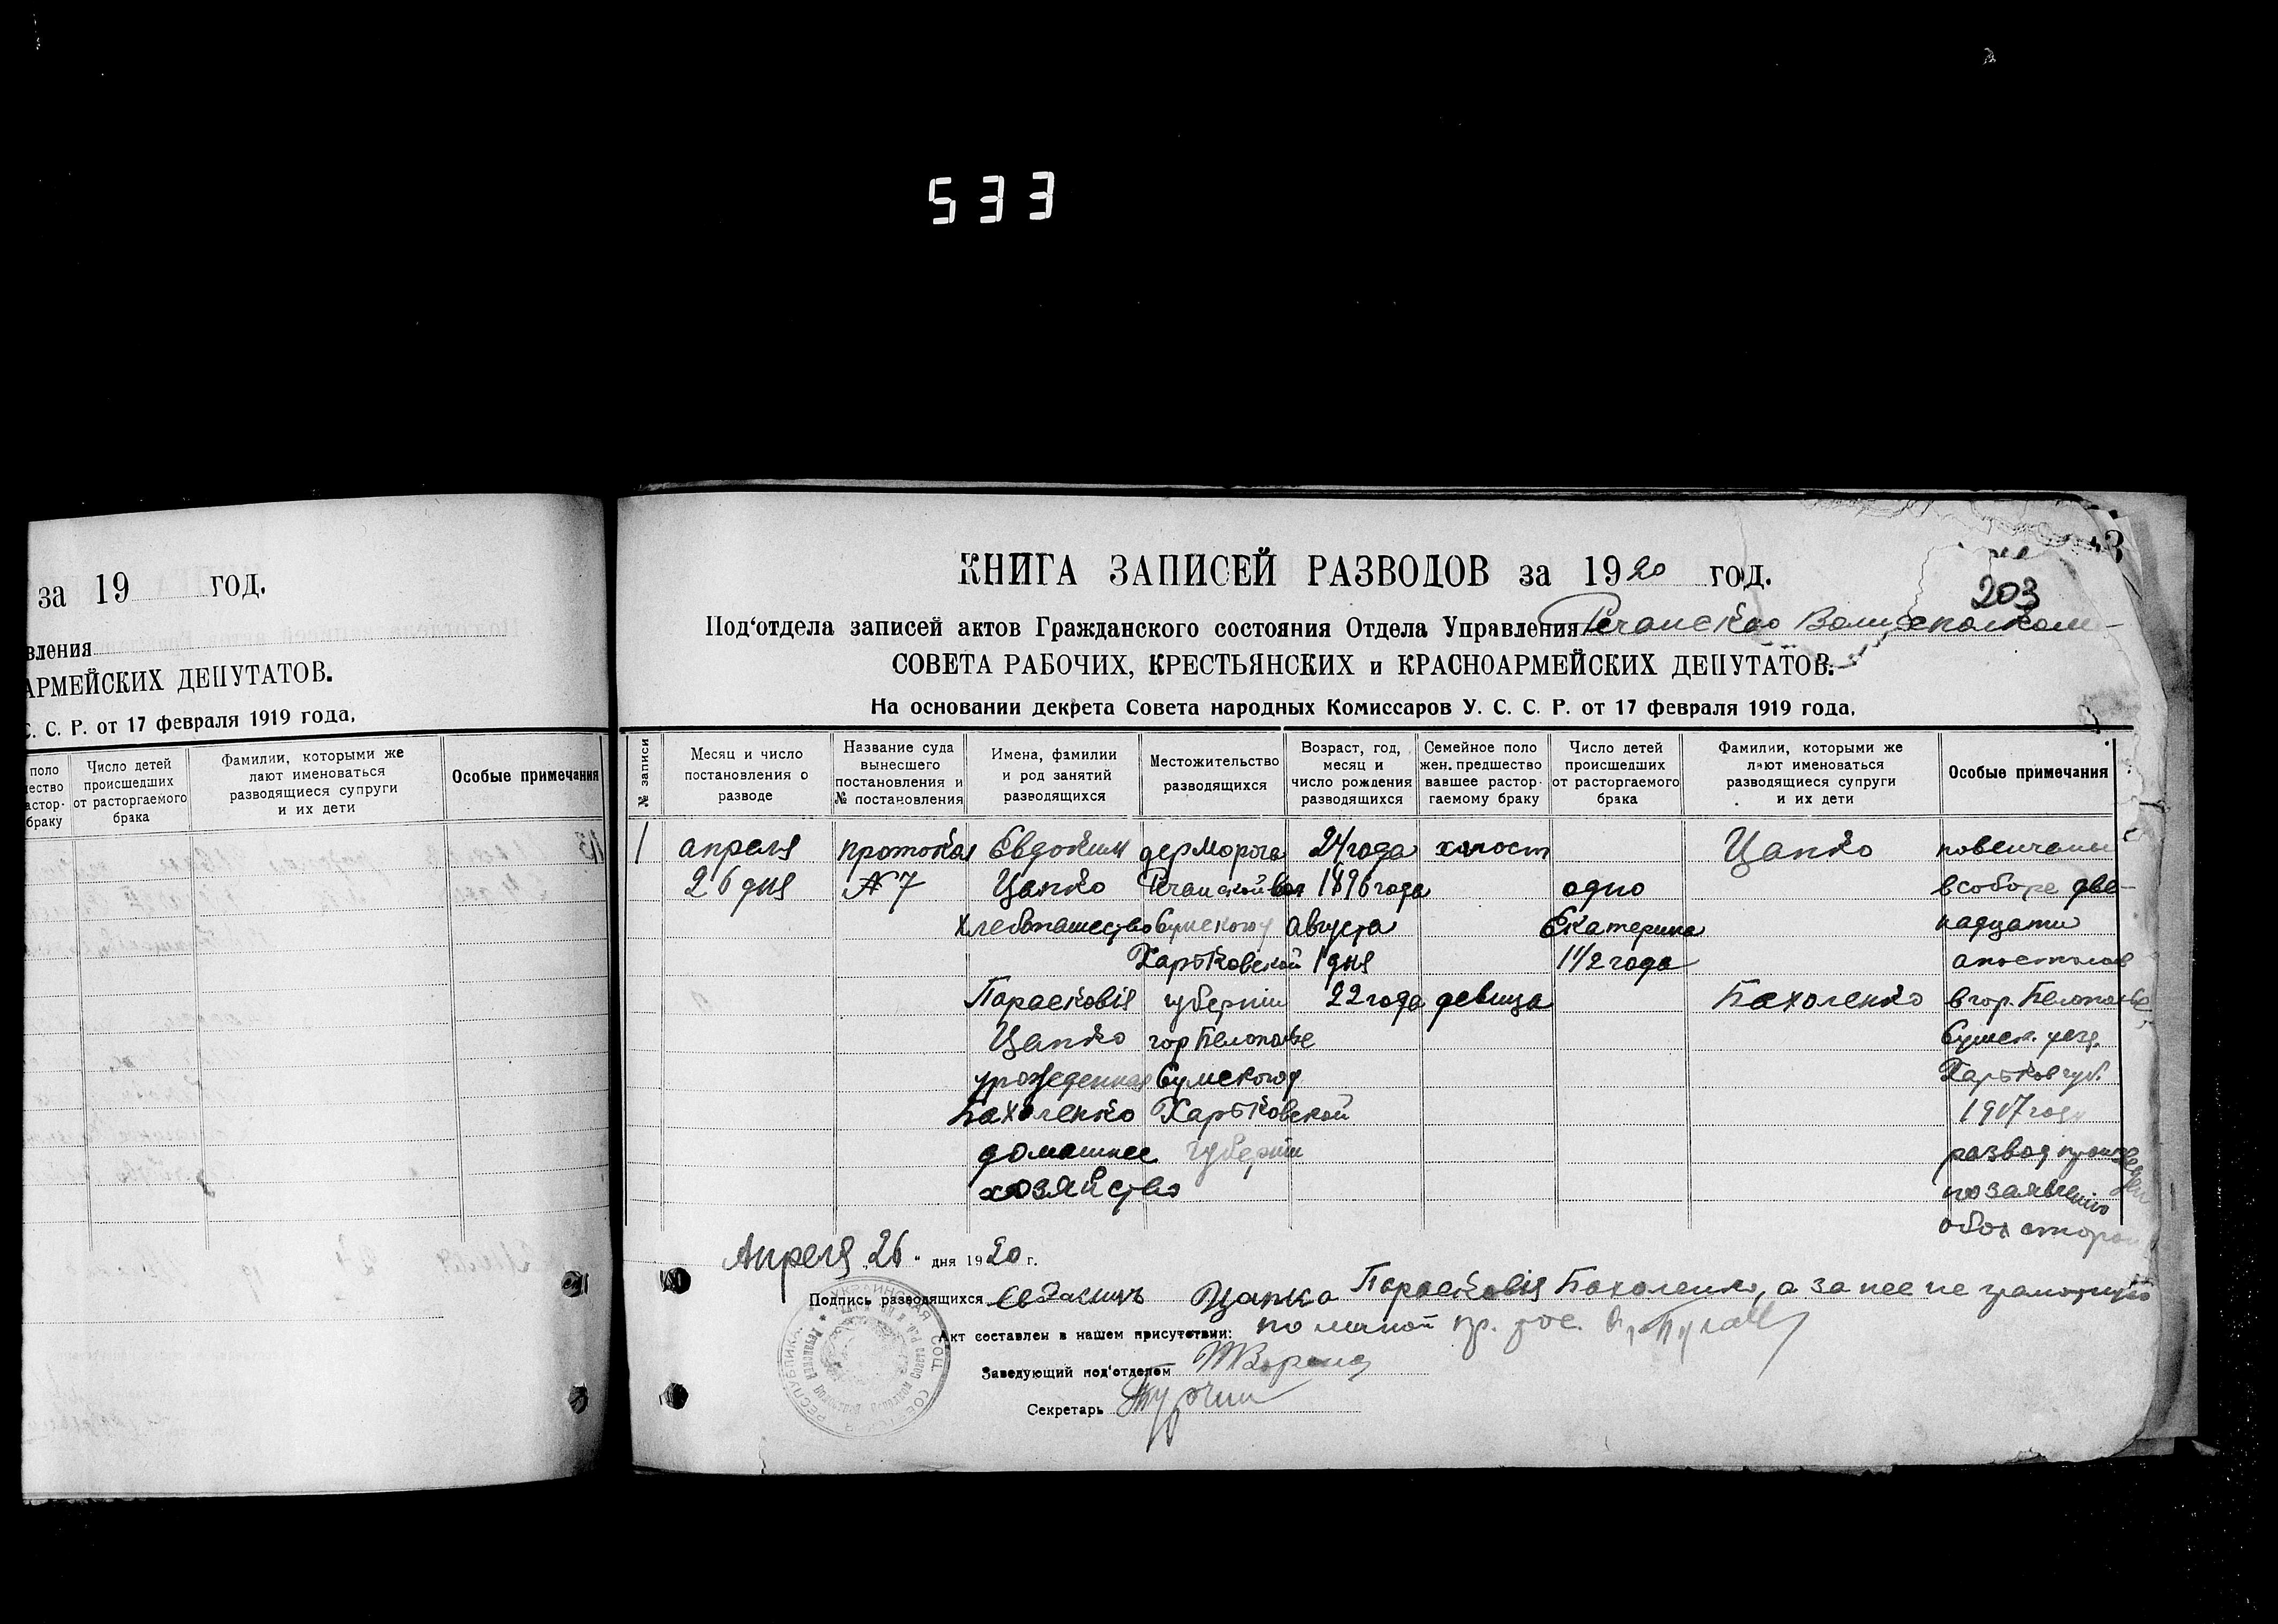 533
за 19 год.
вления
АРМЕЙСКИХ ДЕПУТАТОВ.
С. С. Р. от 17 февраля 1919 года,
поло
Число детей происшедших от расторгаемого брака
Фамилии, которыми же лают именоваться разводящиеся супруги и их дети
Особые примечания
203
КНИГА ЗАПИСЕЙ РАЗВОДОВ за 1920 год.
Под‘отдела записей актов Гражданского состояния Отдела Управления Речанского Волисполкома
СОВЕТА РАБОЧИХ, КРЕСТЬЯНСКИХ и КРАСНОАРМЕЙСКИХ ДЕПУТАТОВ.
На основании декрета Совета народных Комиссаров У. С. С. Р. от 17 февраля 1919 года,
№ записи
Месяц и число постановления о разводе
Название суда вынесшего постановления и № постановления
Имена, фамилии и род занятий разводящихся
Местожительство разводящихся
Возраст, год, месяц и число рождения разводящихся
Семейное поло жен. предшество вавшее растор- гаемому браку
Число детей происшедших от расторгаемого брака
Фамилии, которыми же лают именоваться разводящиеся супруги и их дети
Особые примечания
1 апреля протокол Евдоким дер Морога 24 года холост Цапко повенчаны
26 дня № 7 Цапко Речанской вол 1896 года одно в соборе две-
хлебопашество Сумского у Августа Екатерина надцати
Харьковской 1 дня 1 1/2 года апостолов
Парасковія губерніи 22 года девица Бахоленко в гор. Белополье
Цапко гор Белополье Сумск. уезд.
урожденная Сумского у Харьков губ.
Бахоленко Харьковской 1917 году
домашнее губерніи развод произведен
хозяйство по заявлению
обох сторон
Апреля „26“ дня 1920 г.
Подпись разводящихся Евдакимъ Цапко Парасковія Бахоленко, а за нее не грамотную
Акт составлен в нашем присутствии: по личной пр. рос.
Заведующий под‘отделом
Секретарь